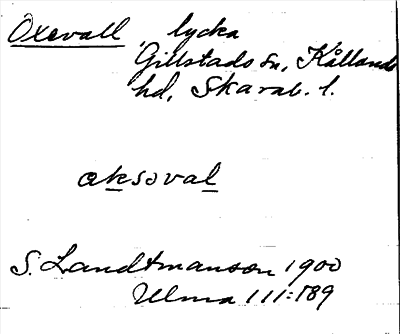 Oxevall, lycka
Gillstads sn, Kållands
hd, Skarab. l.
aksəval
S. Landtmanson 1900
Ulma 111:189